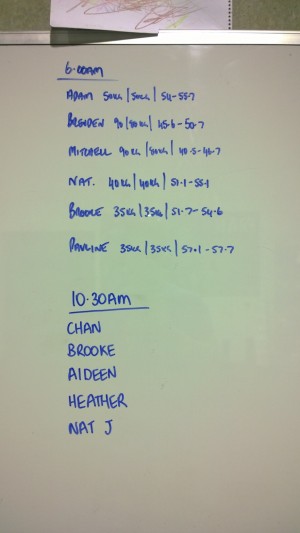 6.00AM
ADAM 50KG | 50KG | 54-55.7
BRENDEN 90 | 80KG | 45.6-50.7
MITCHELL 90KG | 80KG | 40.5-46.7
NAT. 40KG | 40KG | 51.1-55.1
BROOKE 35KG | 35KG | 51.7-54.6
PAULINE 35KG | 35KG | 57.1-57.7
10.30AM
CHAN
BROOKE
AIDEEN
HEATHER
NAT J